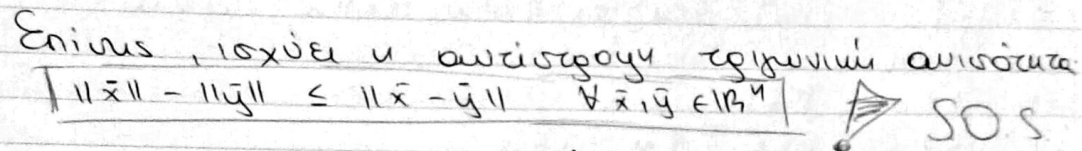 Επίσης, ισχύει η αντίστροφη τριγωνική ανισότητα
||x̄|| - ||ȳ|| ≤ ||x̄ - ȳ|| ∀ x̄, ȳ ∈ ℝⁿ SOS